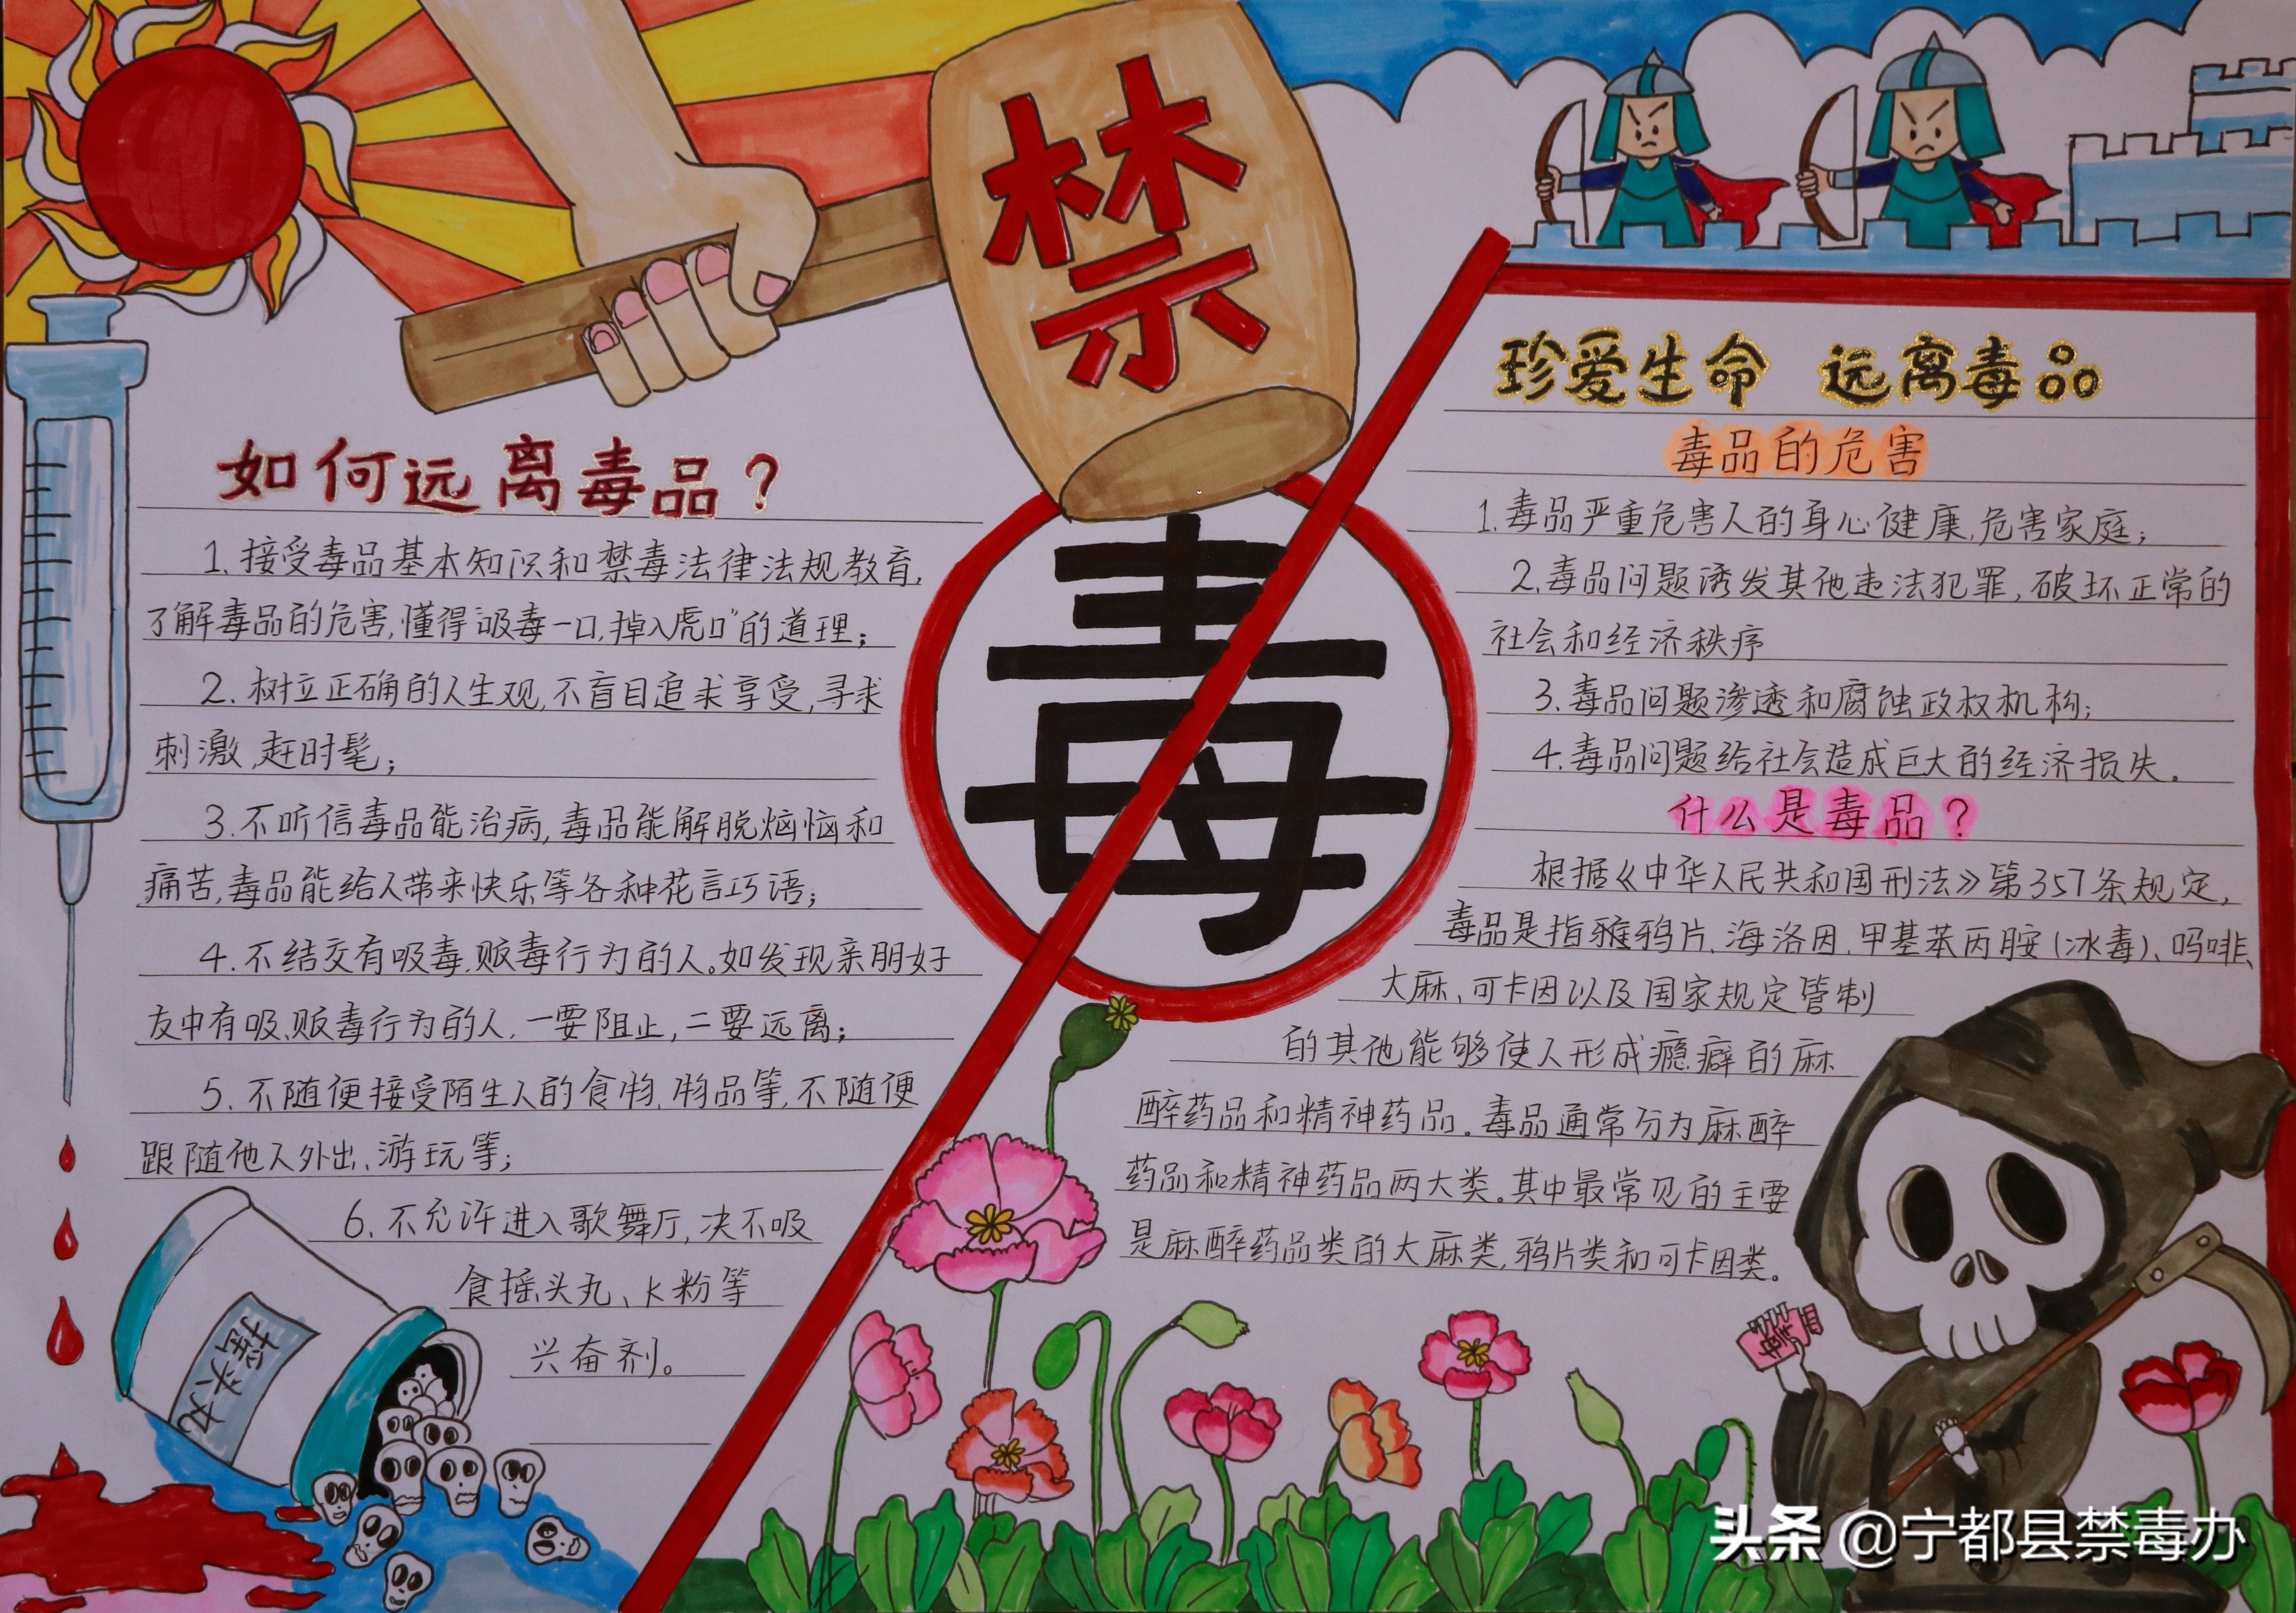 禁
毒
如何远离毒品？
1.接受毒品基本知识和禁毒法律法规教育,
了解毒品的危害,懂得“吸毒一口,掉入虎口”的道理；
2.树立正确的人生观,不盲目追求享受,寻求
刺激,赶时髦；
3.不听信毒品能治病,毒品能解脱烦恼和
痛苦,毒品能给人带来快乐等各种花言巧语；
4.不结交有吸毒、贩毒行为的人。如发现亲朋好
友中有吸、贩毒行为的人,一要阻止,二要远离；
5.不随便接受陌生人的食物、物品等,不随便
跟随他人外出、游玩等；
6.不允许进入歌舞厅,决不吸
食摇头丸、K粉等
兴奋剂。
摇头丸
珍爱生命 远离毒品
毒品的危害
1.毒品严重危害人的身心健康,危害家庭；
2.毒品问题诱发其他违法犯罪,破坏正常的
社会和经济秩序
3.毒品问题渗透和腐蚀政权机构；
4.毒品问题给社会造成巨大的经济损失。
什么是毒品？
根据《中华人民共和国刑法》第357条规定,
毒品是指鸦片、海洛因、甲基苯丙胺(冰毒)、吗啡、
大麻、可卡因以及国家规定管制
的其他能够使人形成瘾癖的麻
醉药品和精神药品。毒品通常分为麻醉
药品和精神药品两大类。其中最常见的主要
是麻醉药品类的大麻类,鸦片类和可卡因类。
头条 @宁都县禁毒办